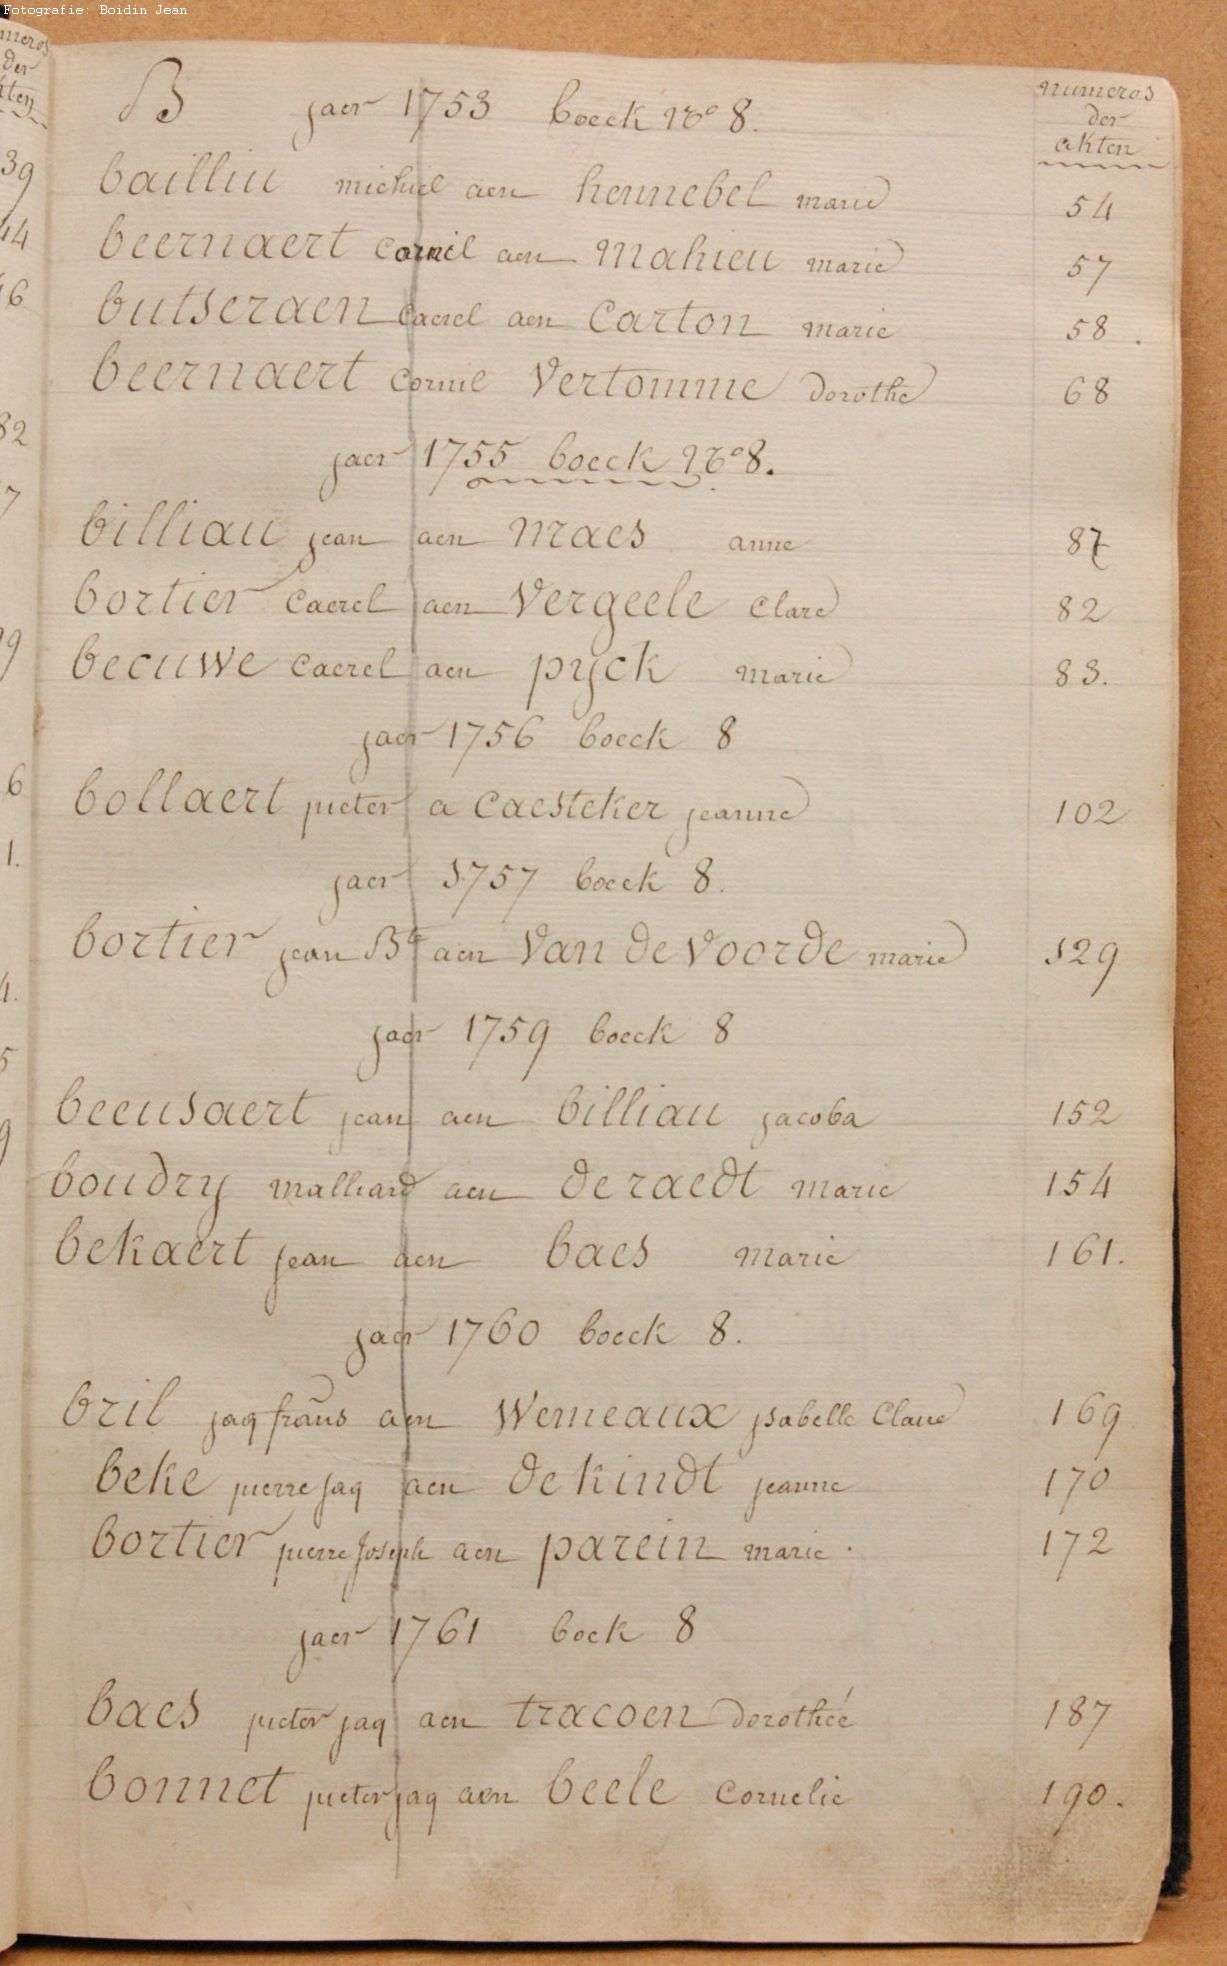 Fotografie: Boidin Jean
numeros
der
akten
B jaer 1753 boeck No 8.
bailliu michiel aen hennebel marie 54
beernaert cornil aen Mahieu marie 57
butseraen Caerel aen Carton marie 58.
beernaert cornil Vertomme dorothe 68
jaer 1755 boeck No 8.
billiau jean aen Maes anne 87
bortier Caerel aen Vergeele Clare 82
becuwe Caerel aen pyck marie 83.
jaer 1756 boeck 8
bollaert pieter a Caesteker jeanne 102
jaer 1757 boeck 8.
bortier jean Bte aen Van de Voorde marie 129
jaer 1759 boeck 8
beeusaert jean aen billiau jacoba 152
boudry malliard aen de raedt marie 154
bekaert jean aen baes marie 161.
jaer 1760 boeck 8.
bril jaq frans aen Werneaux ysabelle Claire 169
beke pierre jaq aen de kindt jeanne 170
bortier pierre joseph aen parein marie. 172
jaer 1761 boek 8
baes pieter jaq aen tracoen dorothéé 187
bonnet pieter jaq aen beele Cornelie 190.